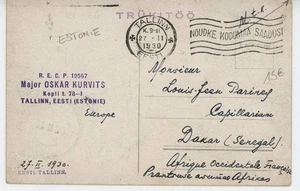 TRÜKITÖÖ
ESTONIE
TALLINN
27-11
1930
EESTI
NÕUDKE KODUMAA SAADUSI
15€
R. E. C. P. 12567
Major OSKAR KURVITS
Kopli t. 78-1
TALLINN, EESTI (ESTONIE)
Europe
Monsieur
Louis-Jean
Capillarium
Dakar (Senegal)
Afrique Occidentale Française
27. II. 1930.
EESTI, TALLINN.